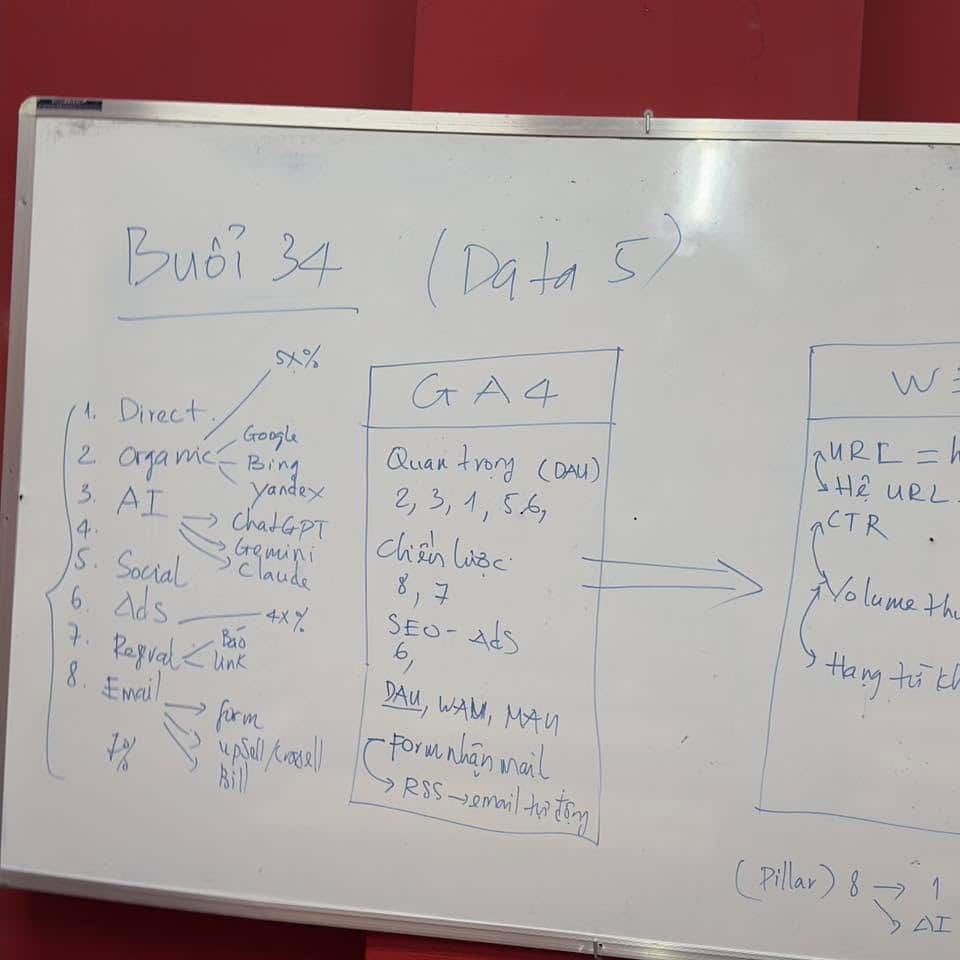 Buổi 34 (Data 5)
5x%
1. Direct.
2 Organic
Google
Bing
yandex
3. AI
ChatGPT
Gemini
Claude
4.
5. Social
6. Ads
4x%
7. Regval
Báo
link
8. Email
form
upsell/crossell
Bill
7%
GA4
Quan trọng (DAU)
2, 3, 1, 5.6,
Chiến lược:
8, 7
SEO - Ads
6,
DAU, WAM, MAU
Form nhận mail
RSS → email tự động
W
URL = h
Hệ URL
CTR
Volume thự
Hạng từ kh
(Pillar) 8 → 1
AI